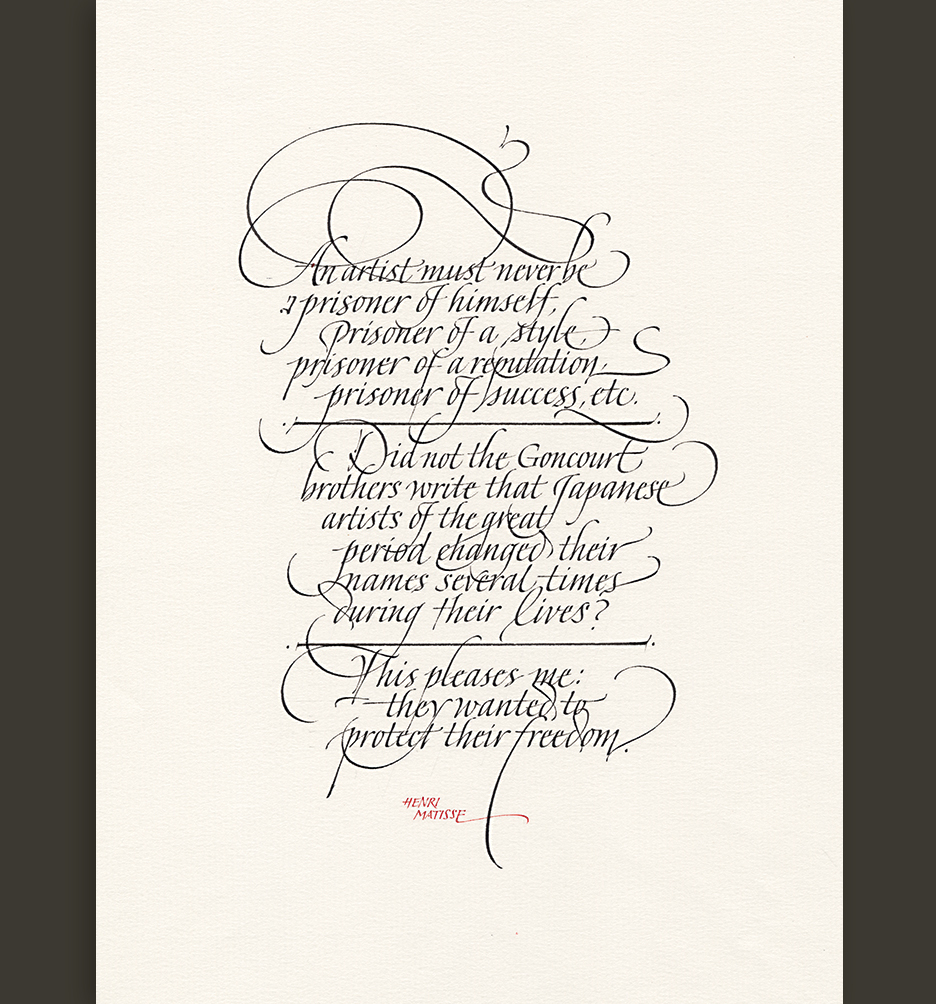 An artist must never be
a prisoner of himself,
prisoner of a style,
prisoner of a reputation,
prisoner of success, etc.
Did not the Goncourt
brothers write that Japanese
artists of the great
period changed their
names several times
during their lives?
This pleases me:
they wanted to
protect their freedom.
HENRI
MATISSE